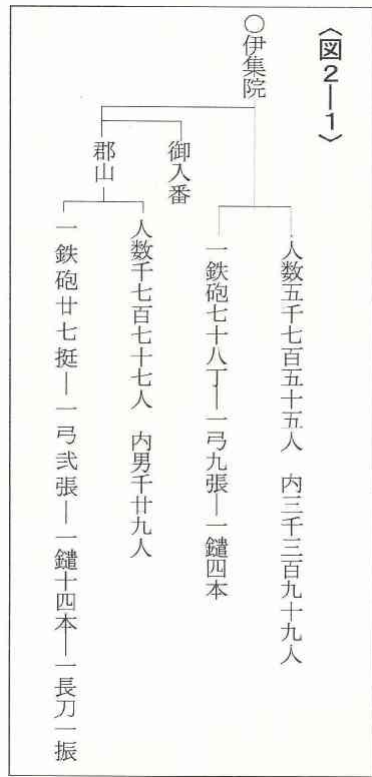 〈図2―1〉
○伊集院
人数五千七百五十五人 内三千三百九十九人
一鉄砲七十八丁―一弓九張―一鑓四本
御入番
郡山
人数千七百七十七人 内男千廿九人
一鉄砲廿七挺―一弓弐張―一鑓十四本―一長刀一振